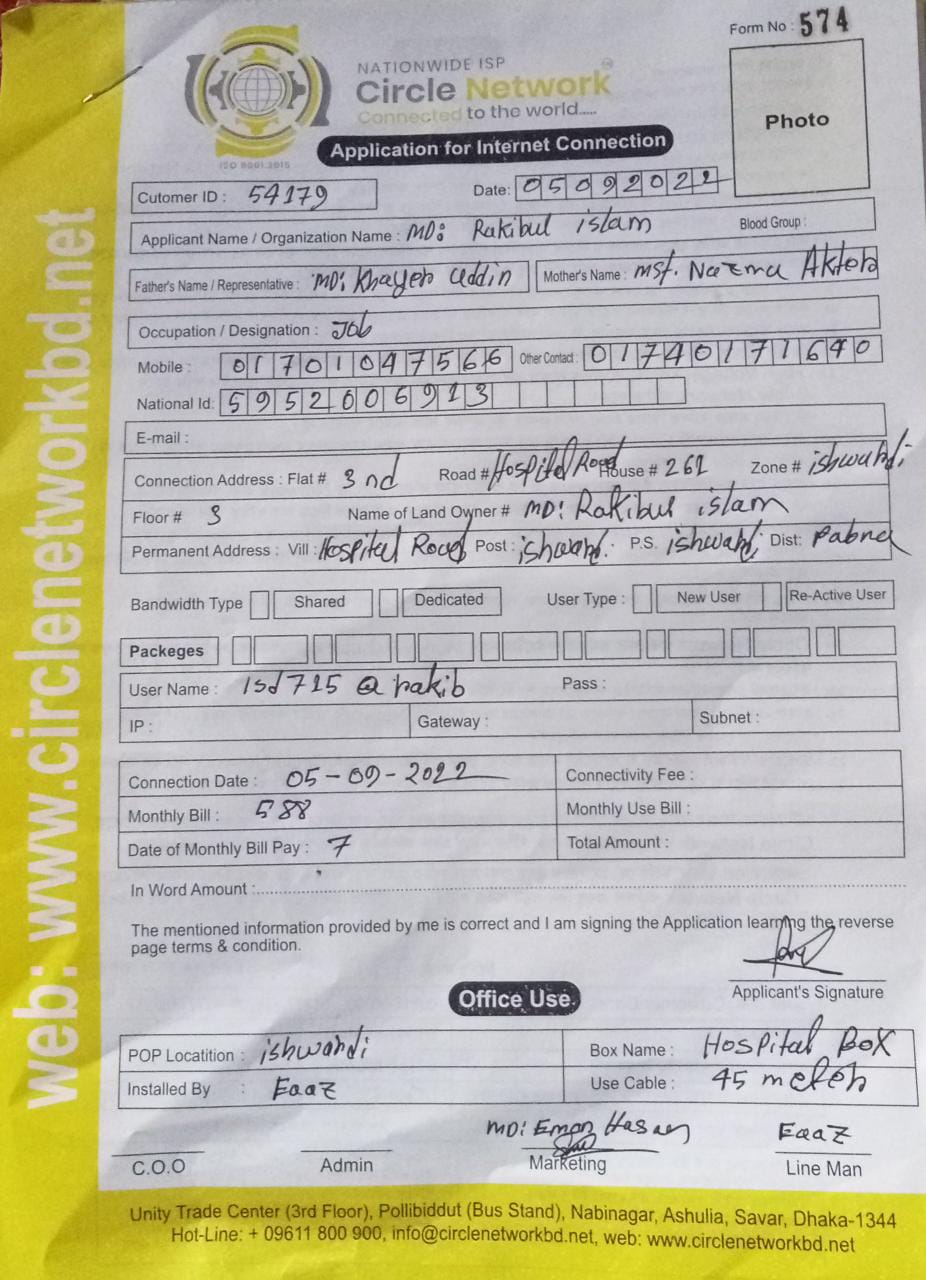 Form No : 574
NATIONWIDE ISP
Circle Network
Connected to the world.....
ISO 9001:2015
Photo
Application for Internet Connection
Cutomer ID : 54179 Date: 05092022
Applicant Name / Organization Name : MD: Rakibul islam Blood Group :
Father's Name / Representative : MD: Khayer uddin Mother's Name : mst. Nazma Akter
Occupation / Designation : Job
Mobile : 01701047566 Other Contact : 01740171640
National Id: 5952006913
E-mail :
Connection Address : Flat # 3 nd Road # Hospital Road House # 261 Zone # ishwardi
Floor # 3 Name of Land Owner # MD: Rakibul islam
Permanent Address : Vill : Hospital Road Post : ishwardi P.S. ishwardi Dist: Pabna
Bandwidth Type Shared Dedicated User Type : New User Re-Active User
Packeges
User Name : isd715 @ rakib Pass :
IP : Gateway : Subnet :
Connection Date : 05-09-2022 Connectivity Fee :
Monthly Bill : 588 Monthly Use Bill :
Date of Monthly Bill Pay : 7 Total Amount :
In Word Amount :
The mentioned information provided by me is correct and I am signing the Application learning the reverse
page terms & condition.
Applicant's Signature
Office Use.
POP Locatition : ishwardi Box Name : Hospital Box
Installed By : EaaZ Use Cable : 45 meter
MD: Emon Hasan EaaZ
C.O.O Admin Marketing Line Man
Unity Trade Center (3rd Floor), Pollibiddut (Bus Stand), Nabinagar, Ashulia, Savar, Dhaka-1344
Hot-Line: + 09611 800 900, info@circlenetworkbd.net, web: www.circlenetworkbd.net
web: www.circlenetworkbd.net